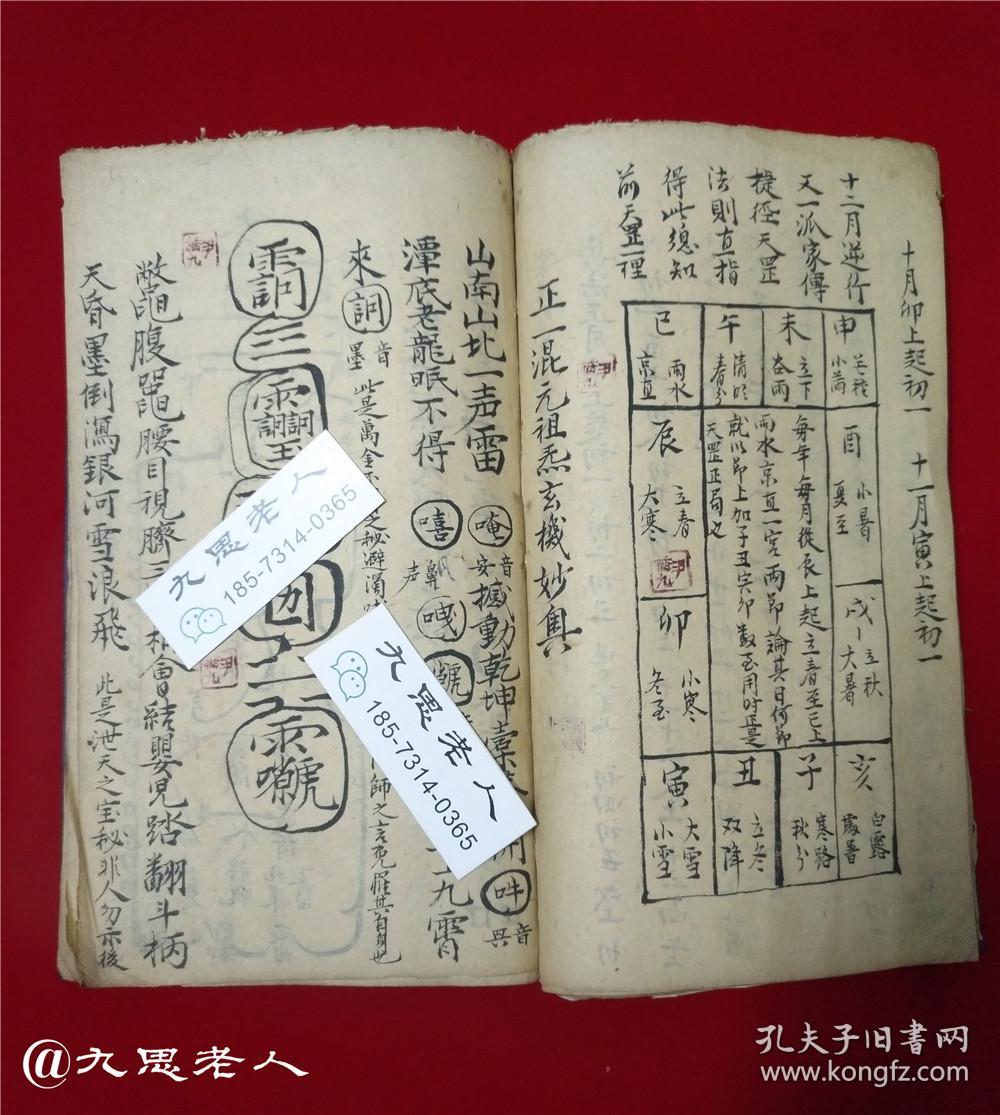 十月卯上起初一 十一月寅上起初一
十二月逆行
又一派家傳
捷徑天罡
法則直指
得此總知
前天罡一理
申 芒種 小滿
未 立下 谷雨
午 清明 春分
巳 雨水 京直
酉 小暑 夏至
辰 立春 大寒
戌 立秋 大暑
卯 小寒 冬至
亥 白露 處暑
子 寒路 秋分
丑 立冬 双降
寅 大雪 小雪
每年每月從辰上起立春至巳上
雨水京直一宮兩節論其日何節
就以節上加子丑寅卯數至用时正是
天罡正局也
正一混元祖炁玄機妙奧
山南山北一声雷 唵 音安 撼動乾坤 吽 音
潭底老龍眠不得 嘻 㖂 九霄
來 詷 音墨 此是萬金不 之秘避濁 師之言 罹其自
三
天昏墨倒瀉銀河雪浪飛 此是泄天之宝秘非人勿示後
腹 腰目視臍 會結嬰兒踏翻斗柄
九思老人
185-7314-0365
九思老人
185-7314-0365
@九思老人
孔夫子旧书网
www.kongfz.com